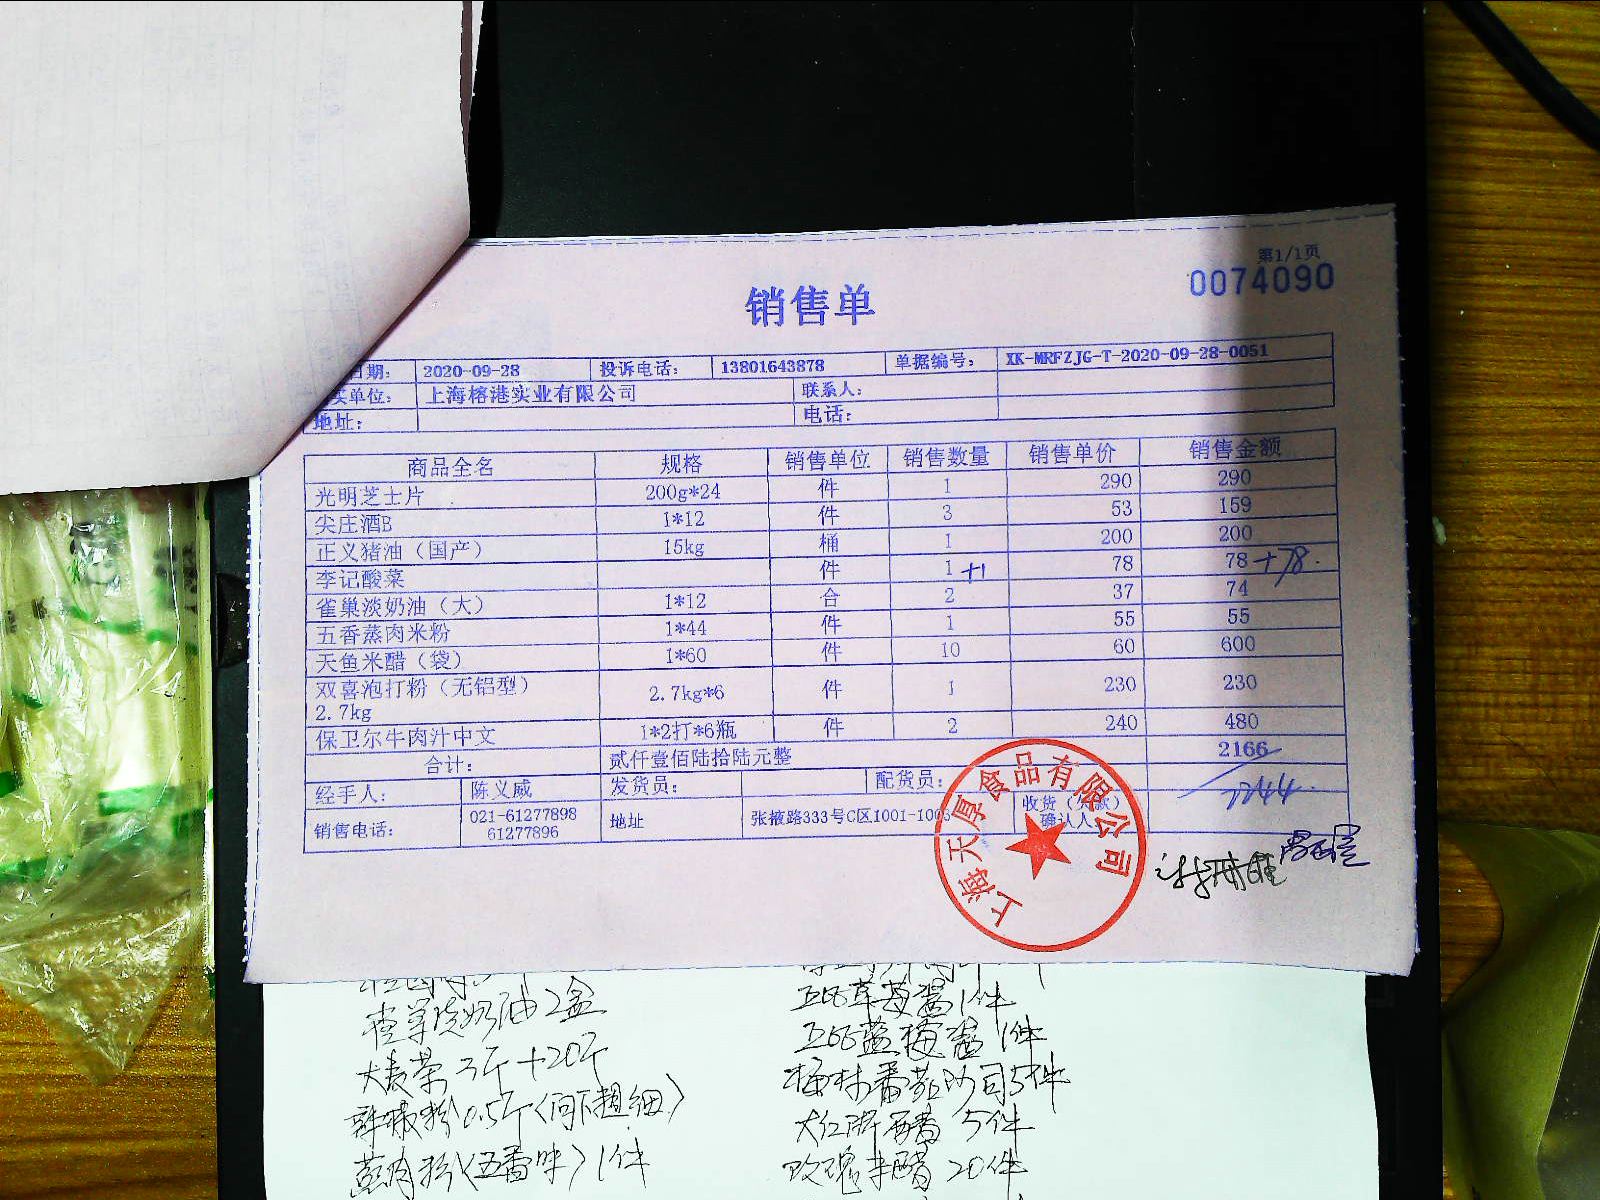 第1/1页
0074090
销售单
日期： 2020-09-28 投诉电话： 13801643878 单据编号： XK-MRFZJG-T-2020-09-28-0051
买单位： 上海榕港实业有限公司 联系人：
地址： 电话：
商品全名 规格 销售单位 销售数量 销售单价 销售金额
光明芝士片 200g*24 件 1 290 290
尖庄酒B 1*12 件 3 53 159
正义猪油（国产） 15kg 桶 1 200 200
李记酸菜 件 1 +1 78 78 +78.
雀巢淡奶油（大） 1*12 合 2 37 74
五香蒸肉米粉 1*44 件 1 55 55
天鱼米醋（袋） 1*60 件 10 60 600
双喜泡打粉（无铝型） 2.7kg*6 件 1 230 230
2.7kg
保卫尔牛肉汁中文 1*2打*6瓶 件 2 240 480
合计： 贰仟壹佰陆拾陆元整 2166
2244.
经手人： 陈义威 发货员： 配货员：
销售电话： 021-61277898 地址 张掖路333号C区1001-1003 收货（欠款）
61277896 确认人
上海天厚食品有限公司
雀巢淡奶油2盒
大麦茶 3斤+20斤
辣椒粉0.5斤(问下粗细)
蒸肉粉(五香味)1件
草莓酱1件
蓝莓酱1件
梅林番茄沙司5件
大红浙醋 5件
玫瑰米醋20件